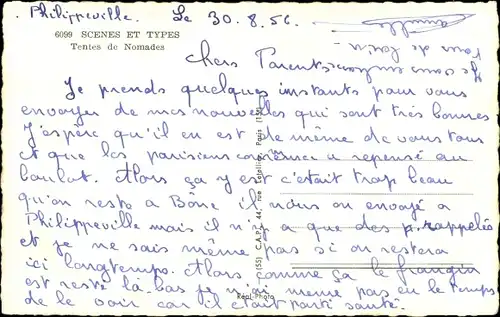 Philippeville. Le 30.8.56.
6099 SCENES ET TYPES
Tentes de Nomades
Chers Parents
Je prends quelques instants pour vous
envoyer de mes nouvelles qui sont très bonnes
J'espère qu'il en est de même de vous tous
et que les parisiens a repensé au
boulot. Alors ça y est c'était trop beau
qu'on reste a Bône il nous on envoyé a
Philippeville mais il n'y a que des rappelés
et je ne sais même pas si on restera
ici longtemps. Alors comme ça le frangin
est resté là-bas je n'ai même pas eu le temps
de le voir car il était parti
(55) C.A.P. 44, rue Letellier, Paris (15e)
Réel-Photo